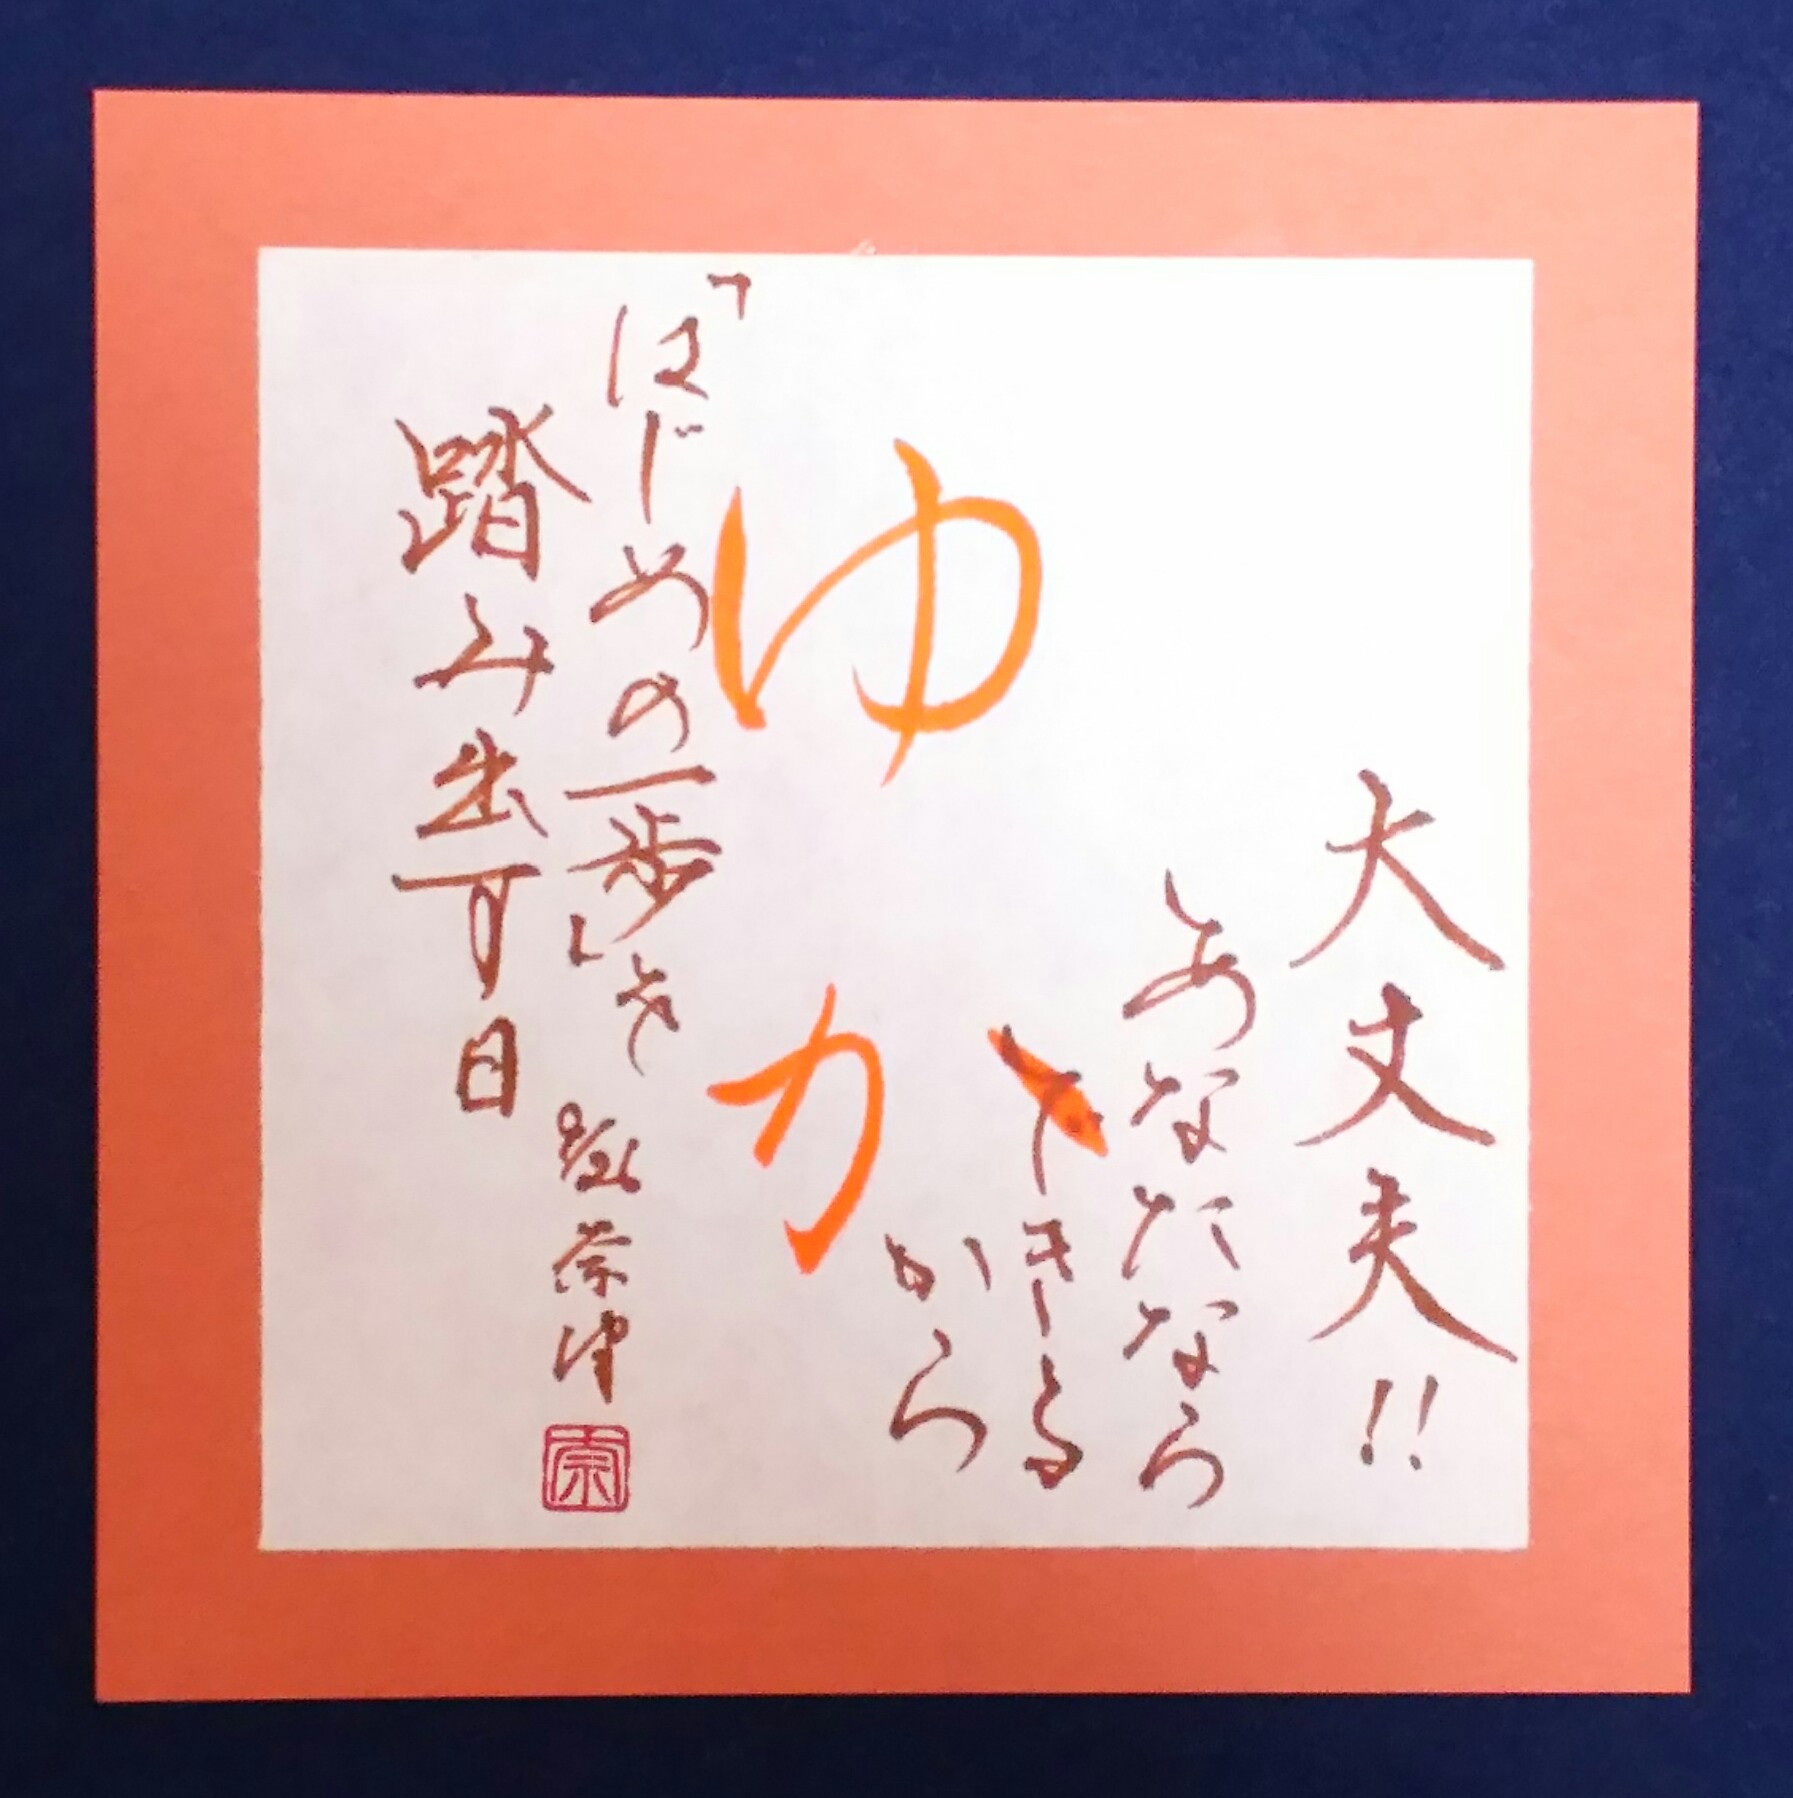 大丈夫!!
あなたなら
できる
から
ゆか
「はじめの一歩」を
踏み出す日
奈津
奈